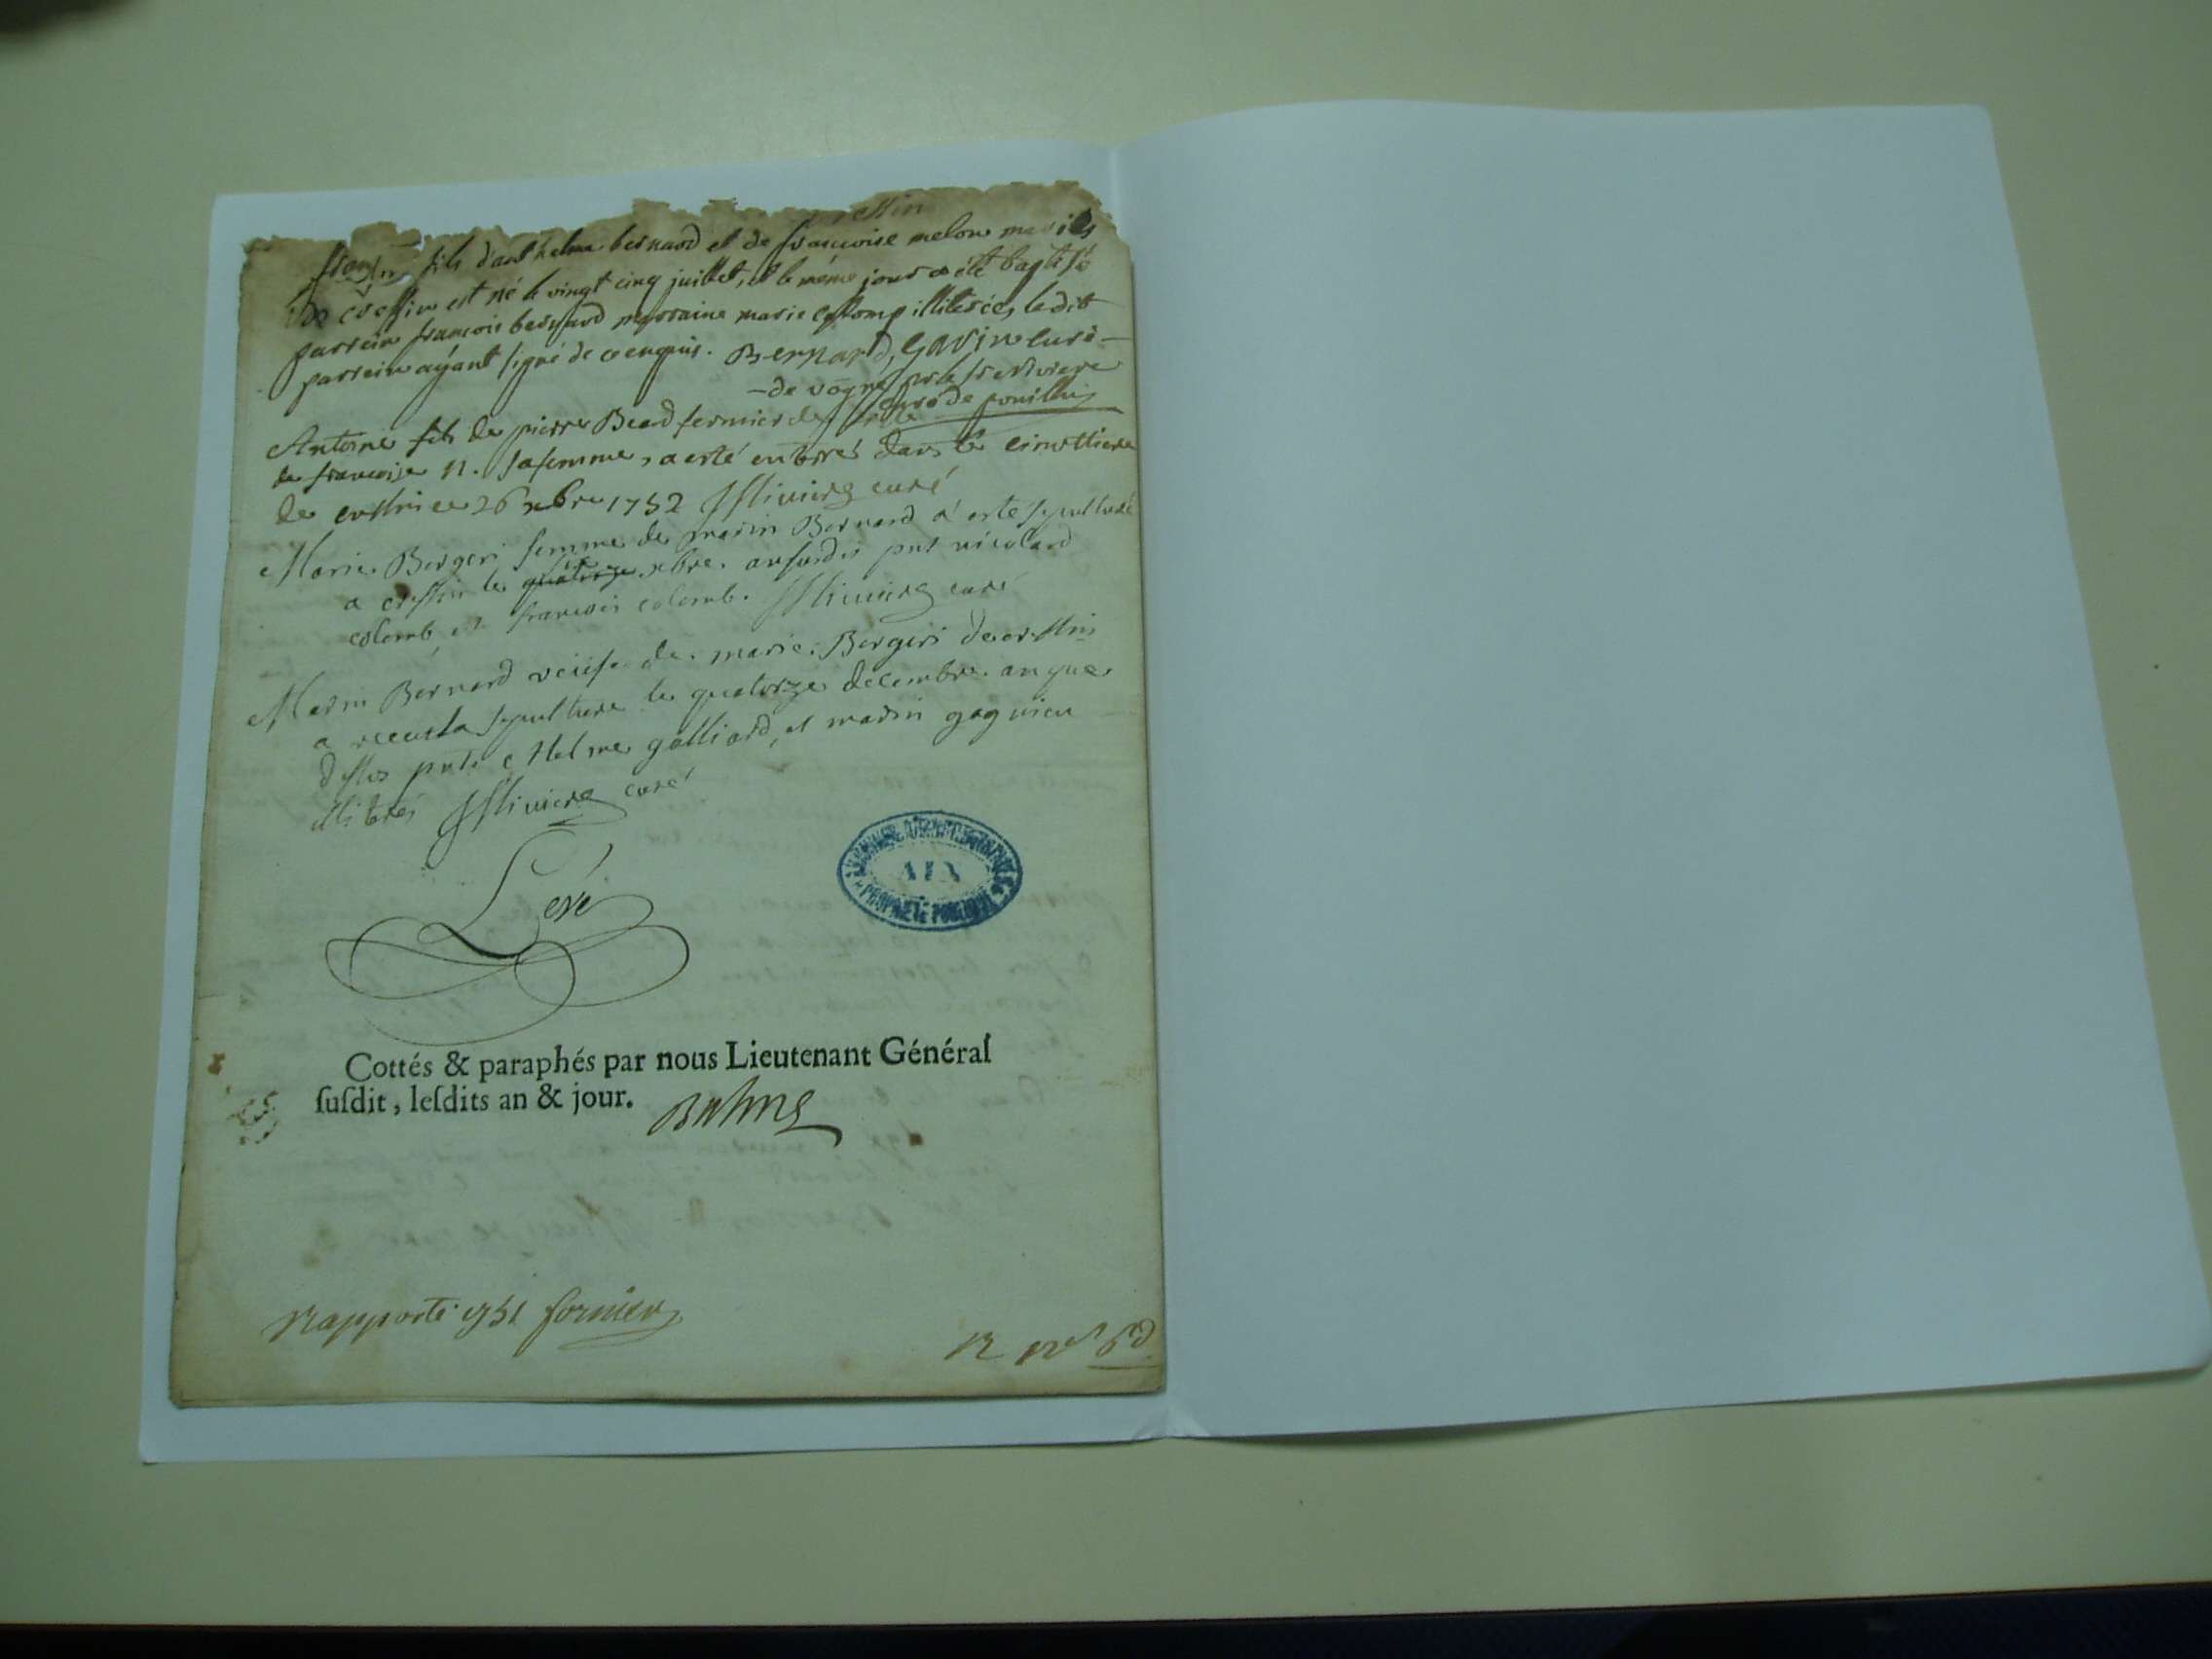 fils danthelme bernard et de francoise melon mariés
de cressin est né le vingt cinq juillet, et le même jour a été baptisé
parrein francois bernard marraine marie colomp illiterées, ledit
parrein ayant signé de ce enquis. Bernard, Gavin curé
de vogne
curé de
Antoine fils de pierre Beaud fermier de
de francoise n. sa femme, a esté enterré dans le cimettiere
de cressin ce 26 xbre 1752 curé
Marie Bergeri femme de marin Bernard a esté sepulturé
a cressin le quatorze xbre. an susdis pnt nicolard
colomb, et francois colomb. curé
Marin Bernard veuf de marie Bergeri de cressin
a receu la sepulture le quatorze decembre an que
dessus pnts thelme galliard, et marin gagnieu
illiterés curé
Cottés & paraphés par nous Lieutenant Général
ſuſdit, leſdits an & jour.
AIN
PROPRIÉTÉ PUBLIQUE
Rapporté